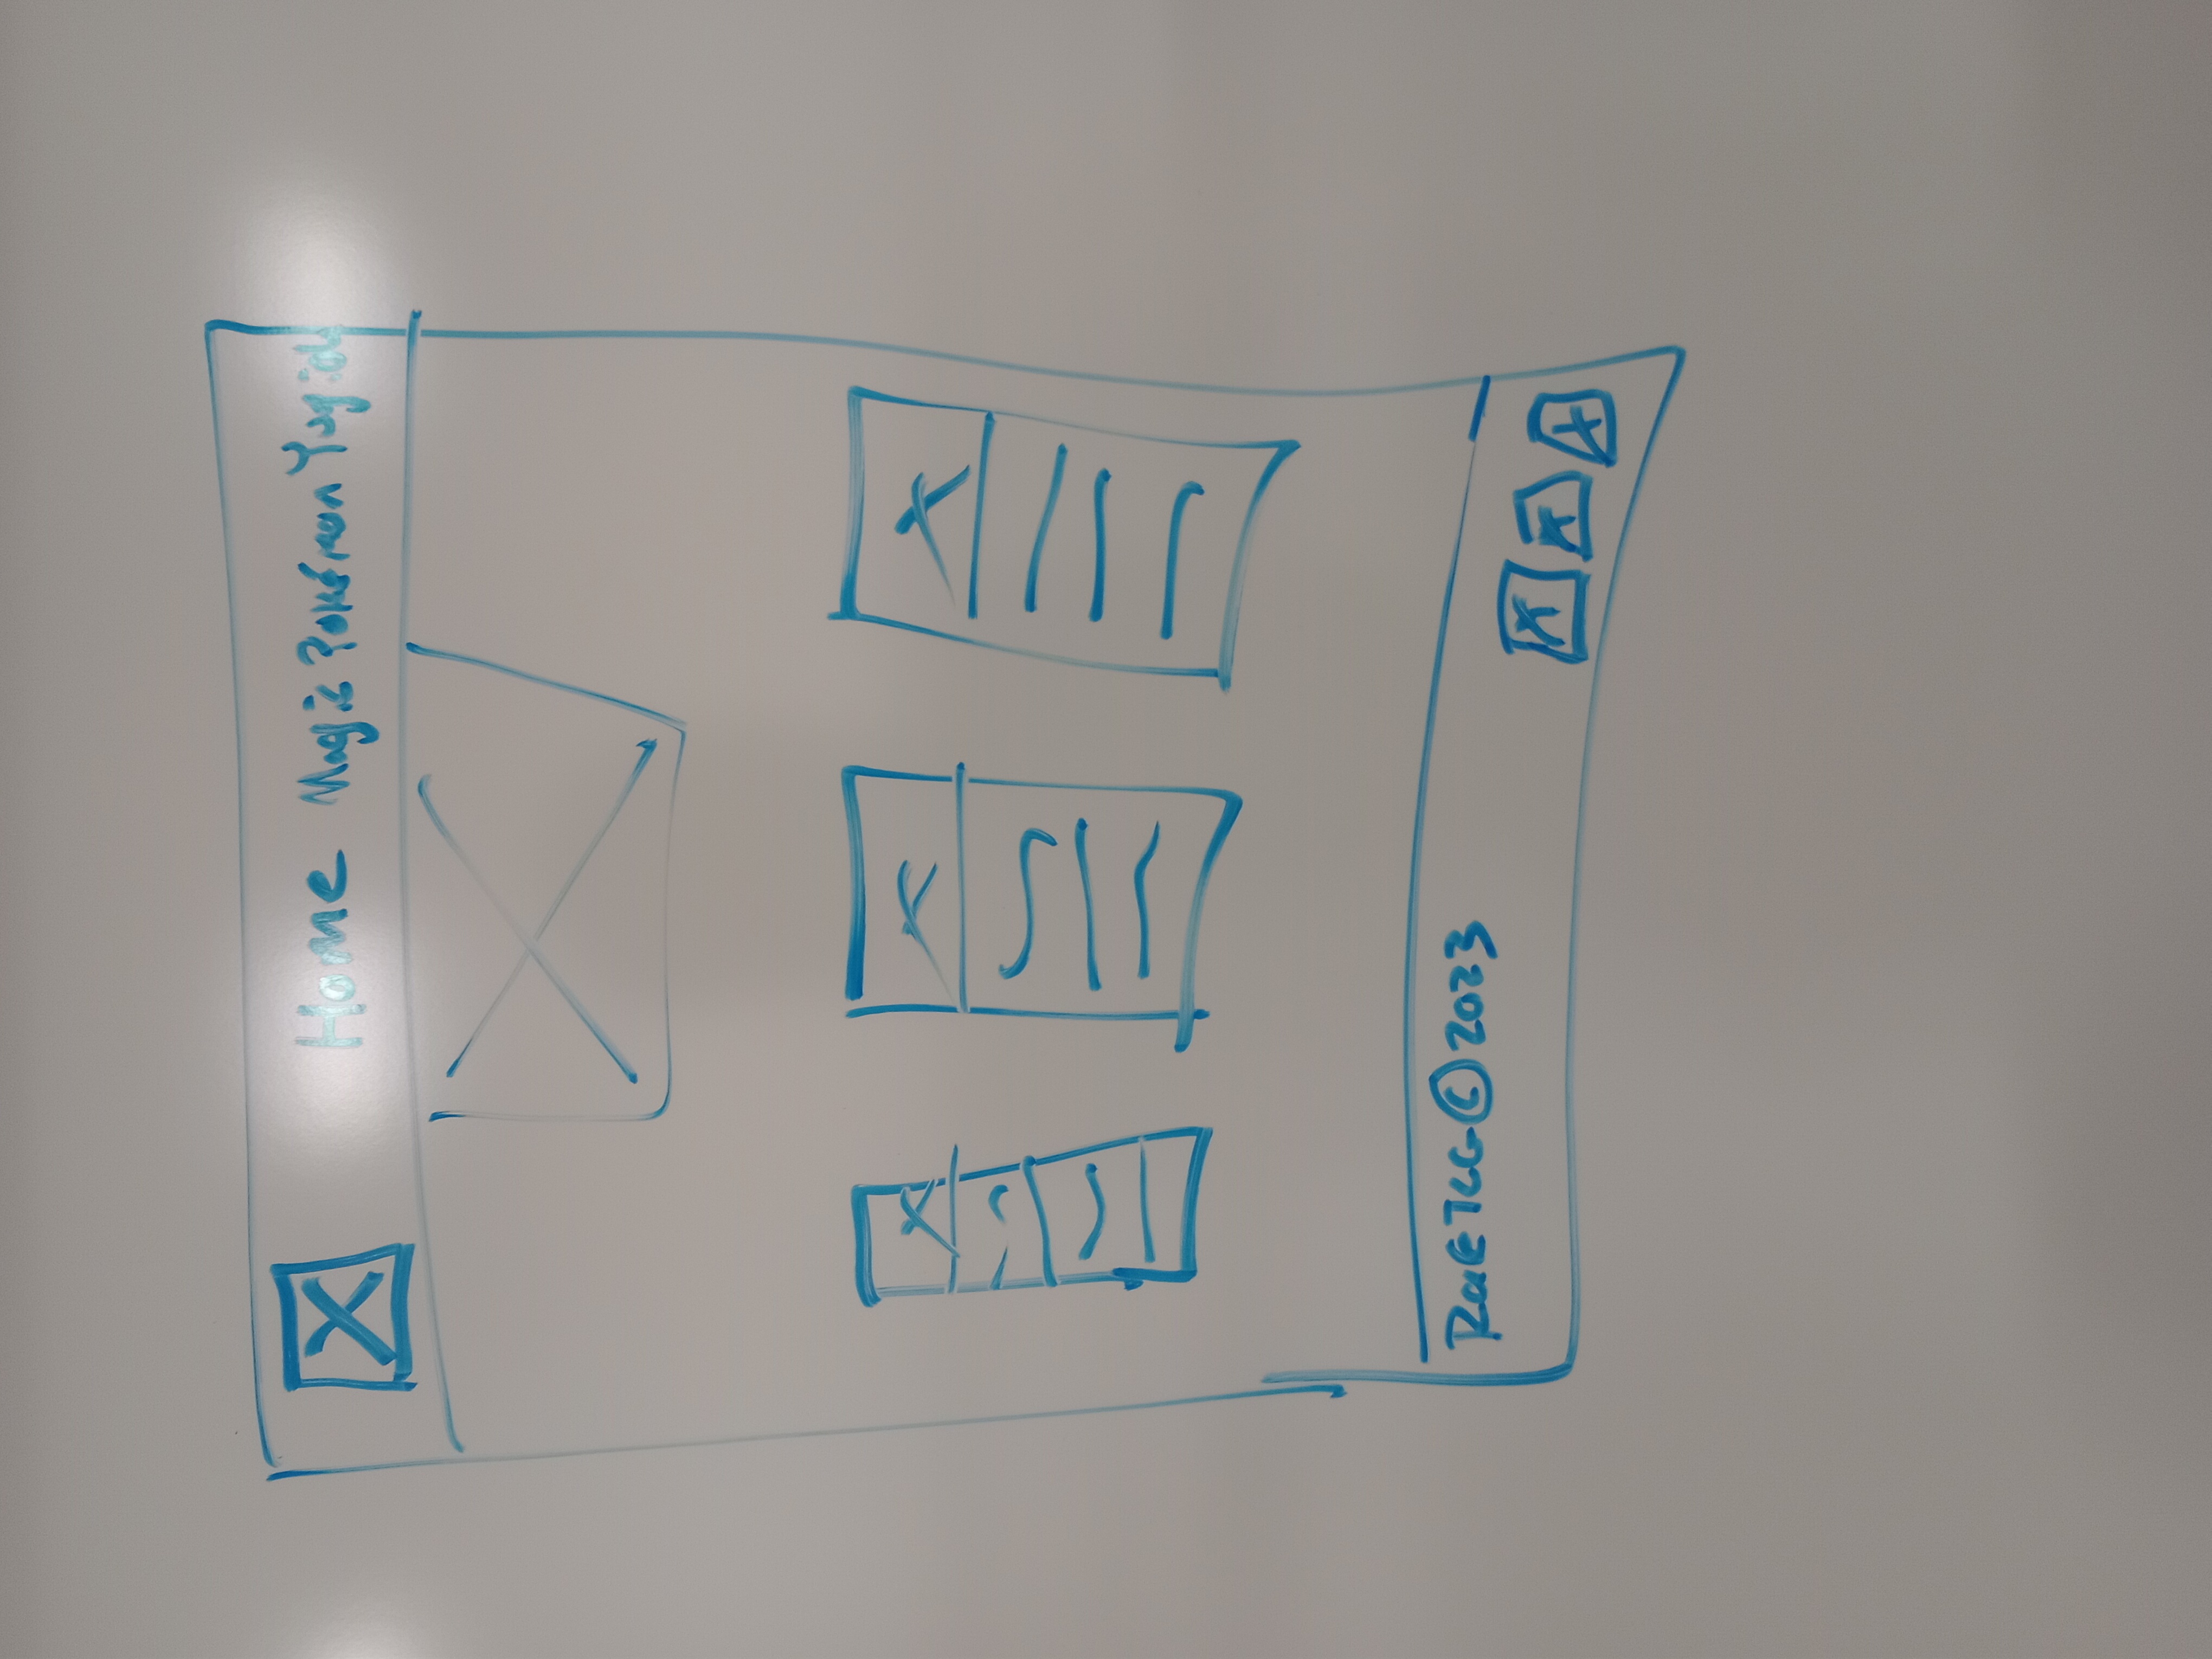 Home Magic Pokémon
RaeTCG © 2023